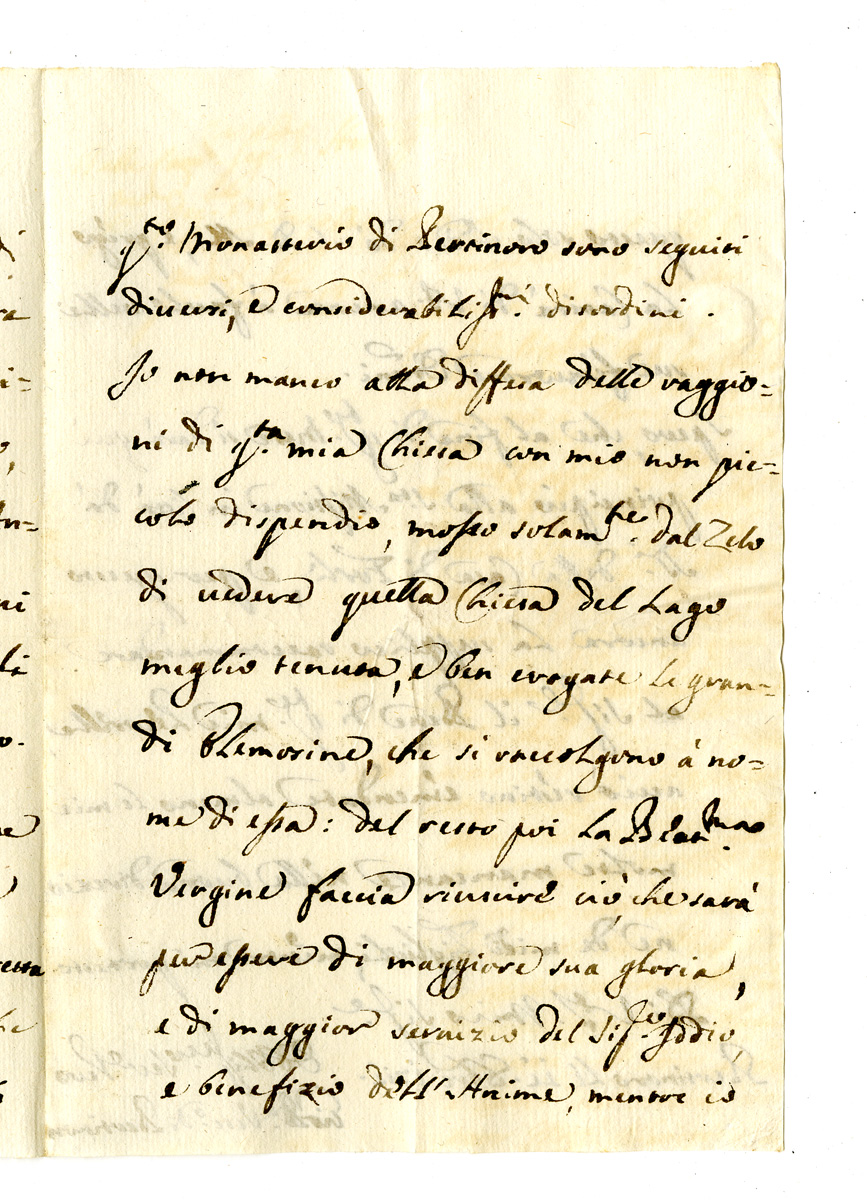 q.to Monasterio di Bertinoro sono seguiti
diversi, e considerabiliss.mi disordini.
Io non manco alla diffesa delle raggio=
ni di q.ta mia Chiesa con mio non pic=
colo dispendio, mosso solam.te dal Zelo
di vedere quella Chiesa del Lago
meglio tenuta, e ben erogate le gran=
di Elemosine, che si raccolgono à no=
me di essa: del resto poi la Beat.ma
Vergine faccia riuscire ciò, che sarà
per essere di maggiore sua gloria,
e di maggior servizio del Sig.re Iddio,
e benefizio dell'Anime, mentre io